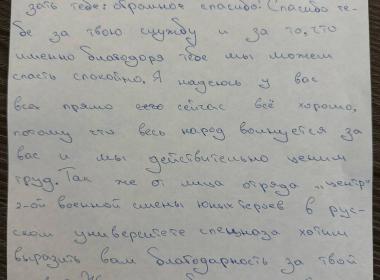 зать тебе: огромное спасибо! Спасибо те-
бе за твою службу и за то, что
именно благодоря тебе мы можем
спасть спокойно. Я надеюсь у вас
всех прямо сейчас всё хорошо,
потому что весь народ волнуется за
вас и мы действительно ценим
труд. Так же от лица отряда "центр"
2-ой военной смены юных героев в рус-
ском университете спецназа хотим
выразить вам благодарность за твой